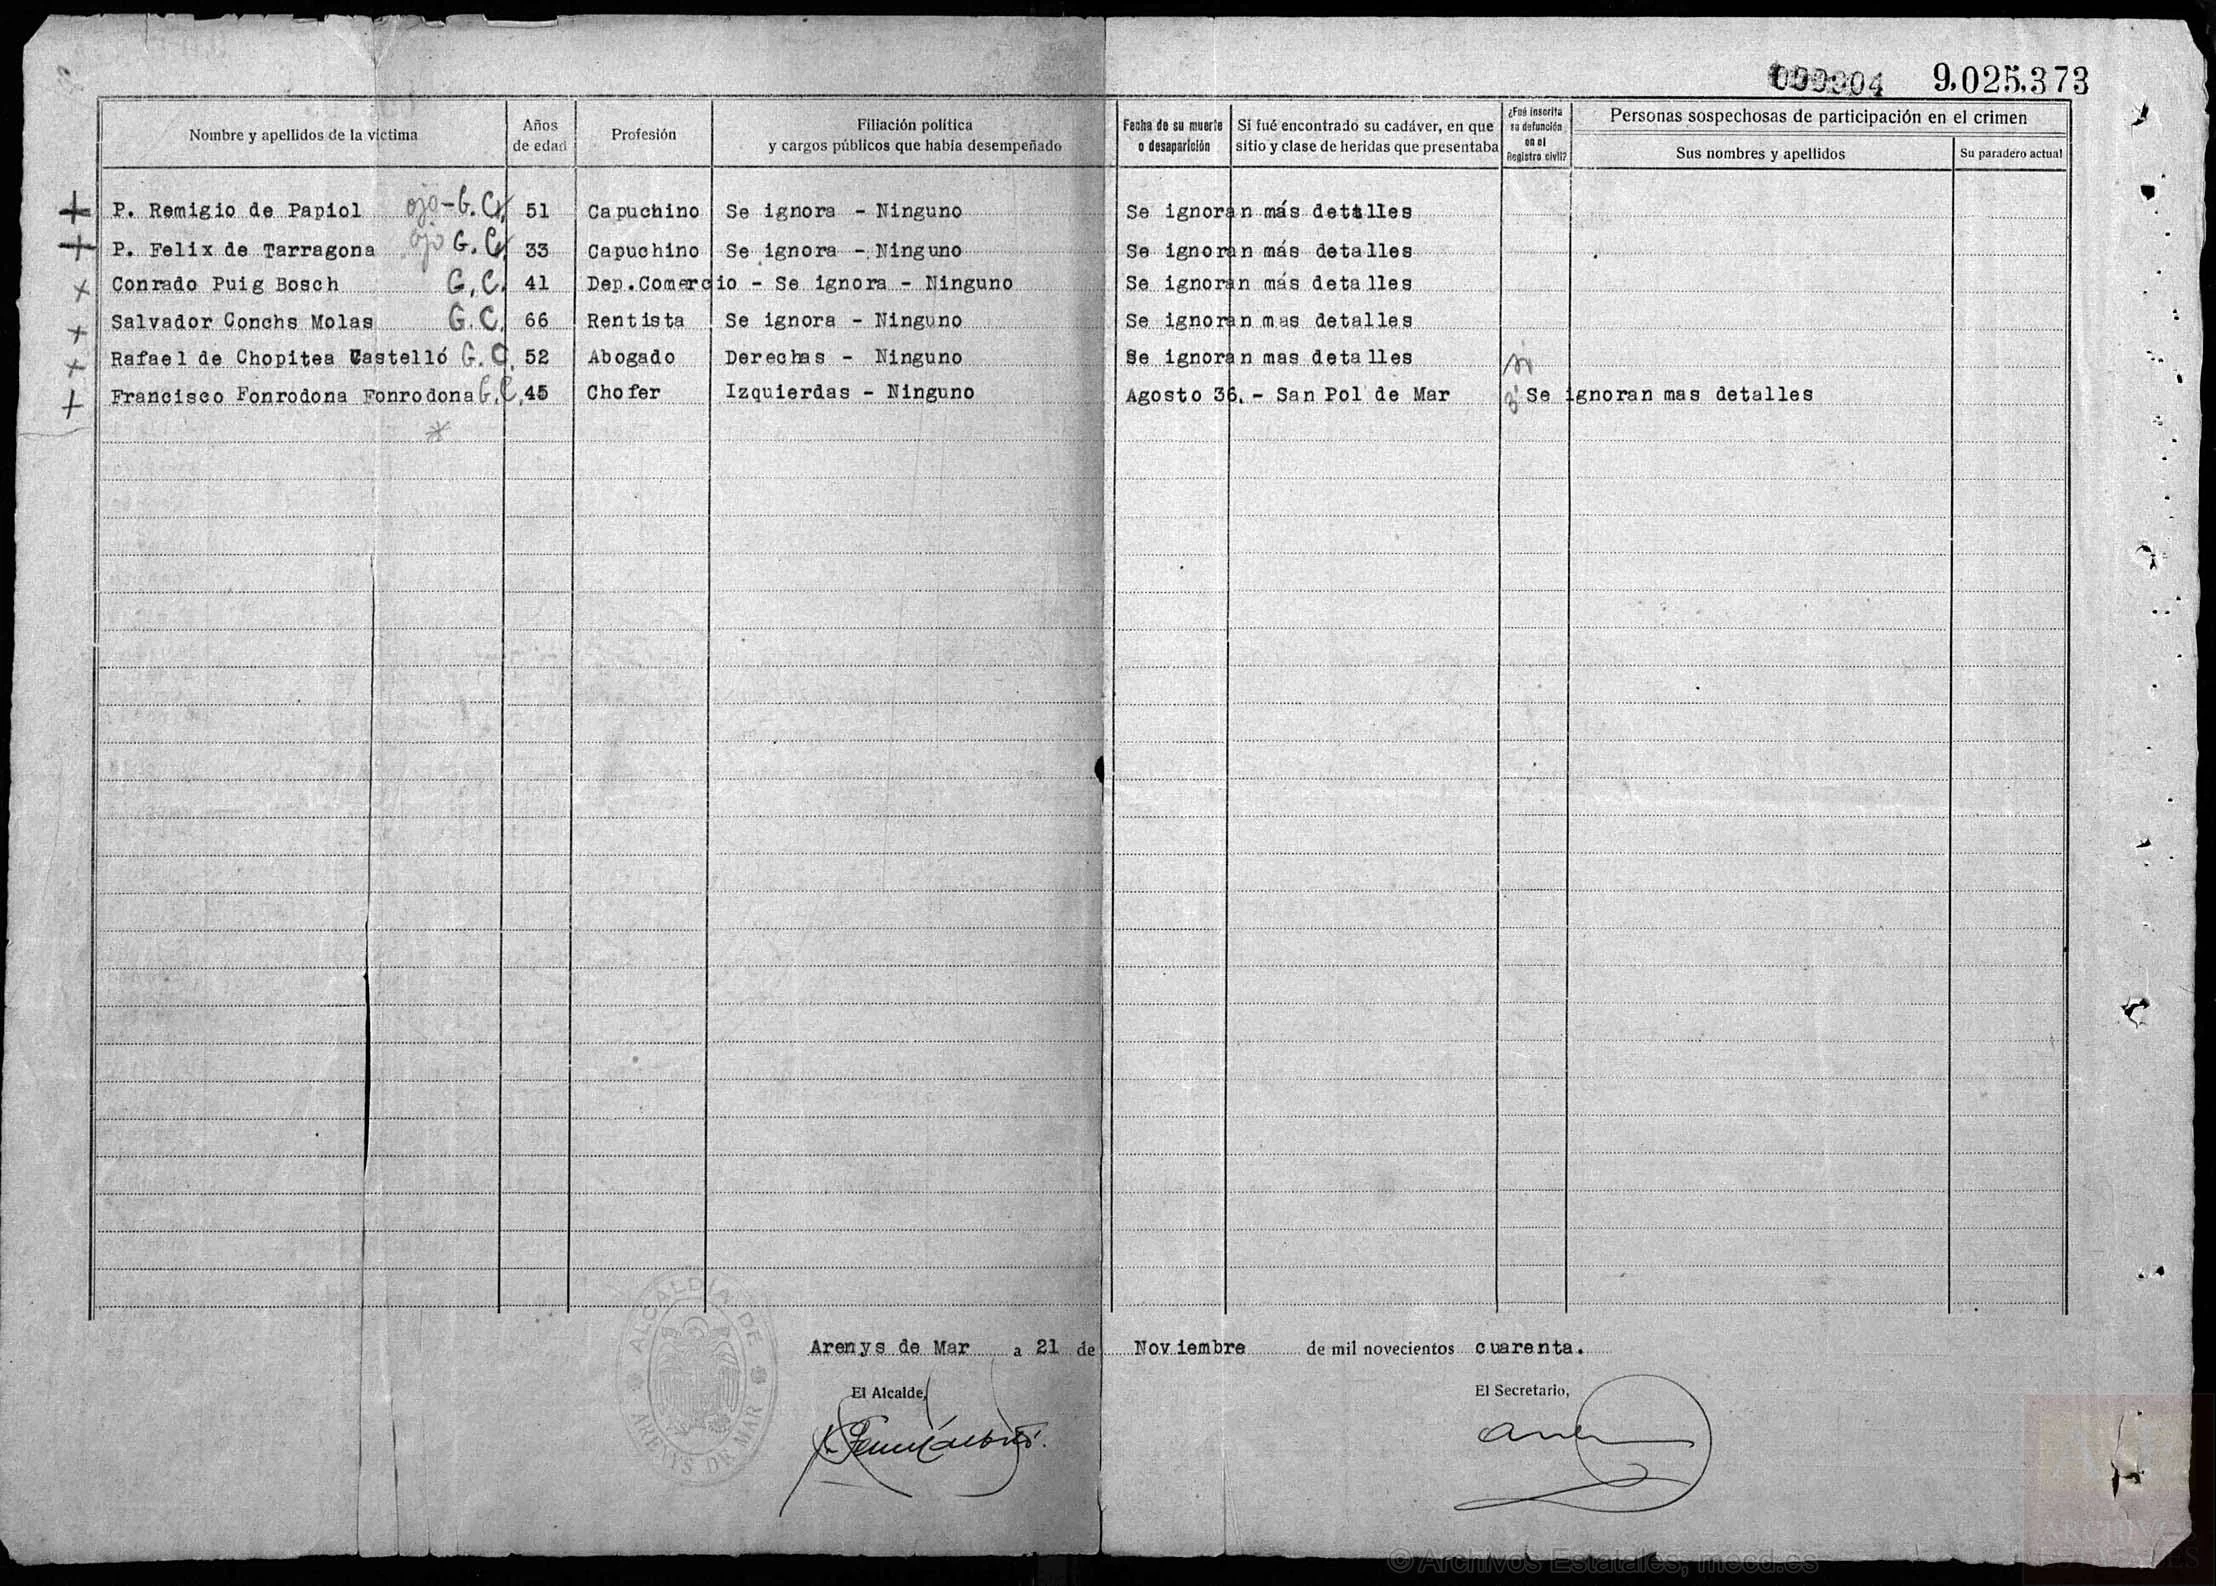 000904 9,025,373
Nombre y apellidos de la víctima
Años de edad
Profesión
Filiación política
y cargos públicos que habia desempeñado
Fecha de su muerte
o desaparición
Si fué encontrado su cadáver, en que
sitio y clase de heridas que presentaba
¿Fué inscrita
su defunción
en el
Registro civil?
Personas sospechosas de participación en el crimen
Sus nombres y apellidos
Su paradero actual
P. Remigio de Papiol ojo-G.C. 51 Capuchino Se ignora - Ninguno Se ignoran más detalles
P. Felix de Tarragona ojo G.C. 33 Capuchino Se ignora - Ninguno Se ignoran más detalles
Conrado Puig Bosch G.C. 41 Dep.Comercio - Se ignora - Ninguno Se ignoran más detalles
Salvador Conchs Molas G.C. 66 Rentista Se ignora - Ninguno Se ignoran mas detalles
Rafael de Chopitea Castelló G.C. 52 Abogado Derechas - Ninguno Se ignoran mas detalles si
Francisco Fonrodona Fonrodona G.C. 45 Chofer Izquierdas - Ninguno Agosto 36. - San Pol de Mar Se ignoran mas detalles
Arenys de Mar a 21 de Noviembre de mil novecientos cuarenta.
El Alcalde,
El Secretario,
ALCALDÍA DE
ARENYS DE MAR
© Archivos Estatales, mecd.es
ARCHIVOS
ESTATALES